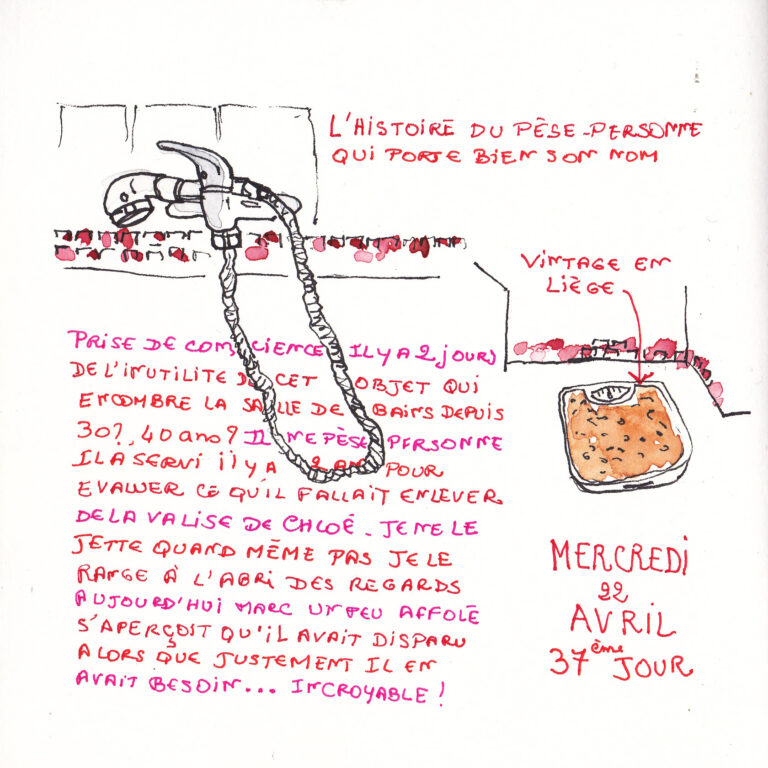 L'HISTOIRE DU PÈSE-PERSONNE
QUI PORTE BIEN SON NOM
VINTAGE EN
LIÈGE
PRISE DE CONSCIENCE IL Y A 2 JOURS
DE L'INUTILITE DE CET OBJET QUI
ENCOMBRE LA SALLE DE BAINS DEPUIS
30?, 40 ans? IL NE PÈSE PERSONNE
IL A SERVI il y A 2 ANS POUR
EVALUER CE QU'IL FALLAIT ENLEVER
DE LA VALISE DE CHLOÉ - JE NE LE
JETTE QUAND MÊME PAS JE LE
RANGE À L'ABRI DES REGARDS
AUJOURD'HUI MARC UN PEU AFFOLÉ
S'APERÇOIT QU'IL AVAIT DISPARU
ALORS QUE JUSTEMENT IL EN
AVAIT BESOIN... INCROYABLE!
MERCREDI
22
AVRIL
37ème JOUR